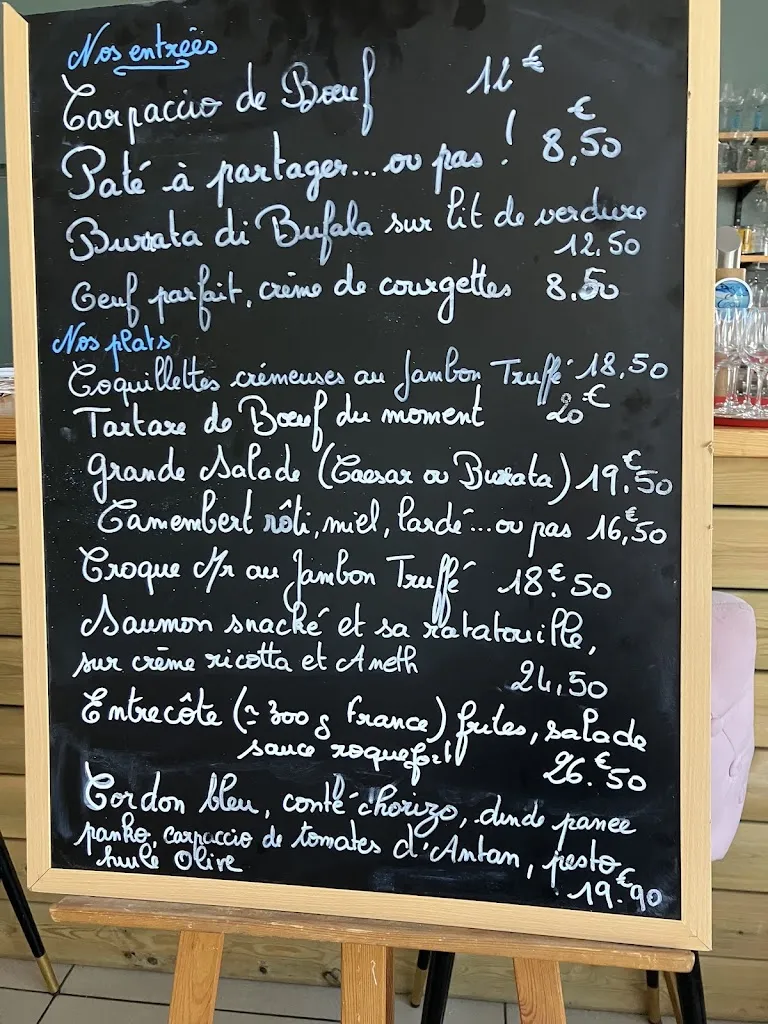 Nos entrées
Carpaccio de Bœuf 12€
Paté à partager... ou pas ! 8,50€
Burrata di Bufala sur lit de verdure
12.50
Oeuf parfait, crème de courgettes 8.50
Nos plats
Coquillettes crémeuses au Jambon Truffé 18,50
Tartare de Bœuf du moment 20€
Grande Salade (Caesar ou Burrata) 19,€50
Camembert rôti, miel, lardé...ou pas 16,€50
Croque Mr au Jambon Truffé 18.€50
Saumon snacké et sa ratatouille,
sur crème ricotta et Aneth 24,50
Entrecôte (≃ 300 g France) frites, salade
sauce roquefort 26.€50
Cordon bleu, conté-chorizo, dinde panee
panko, carpaccio de tomates d'Antan, pesto
huile Olive 19.€90